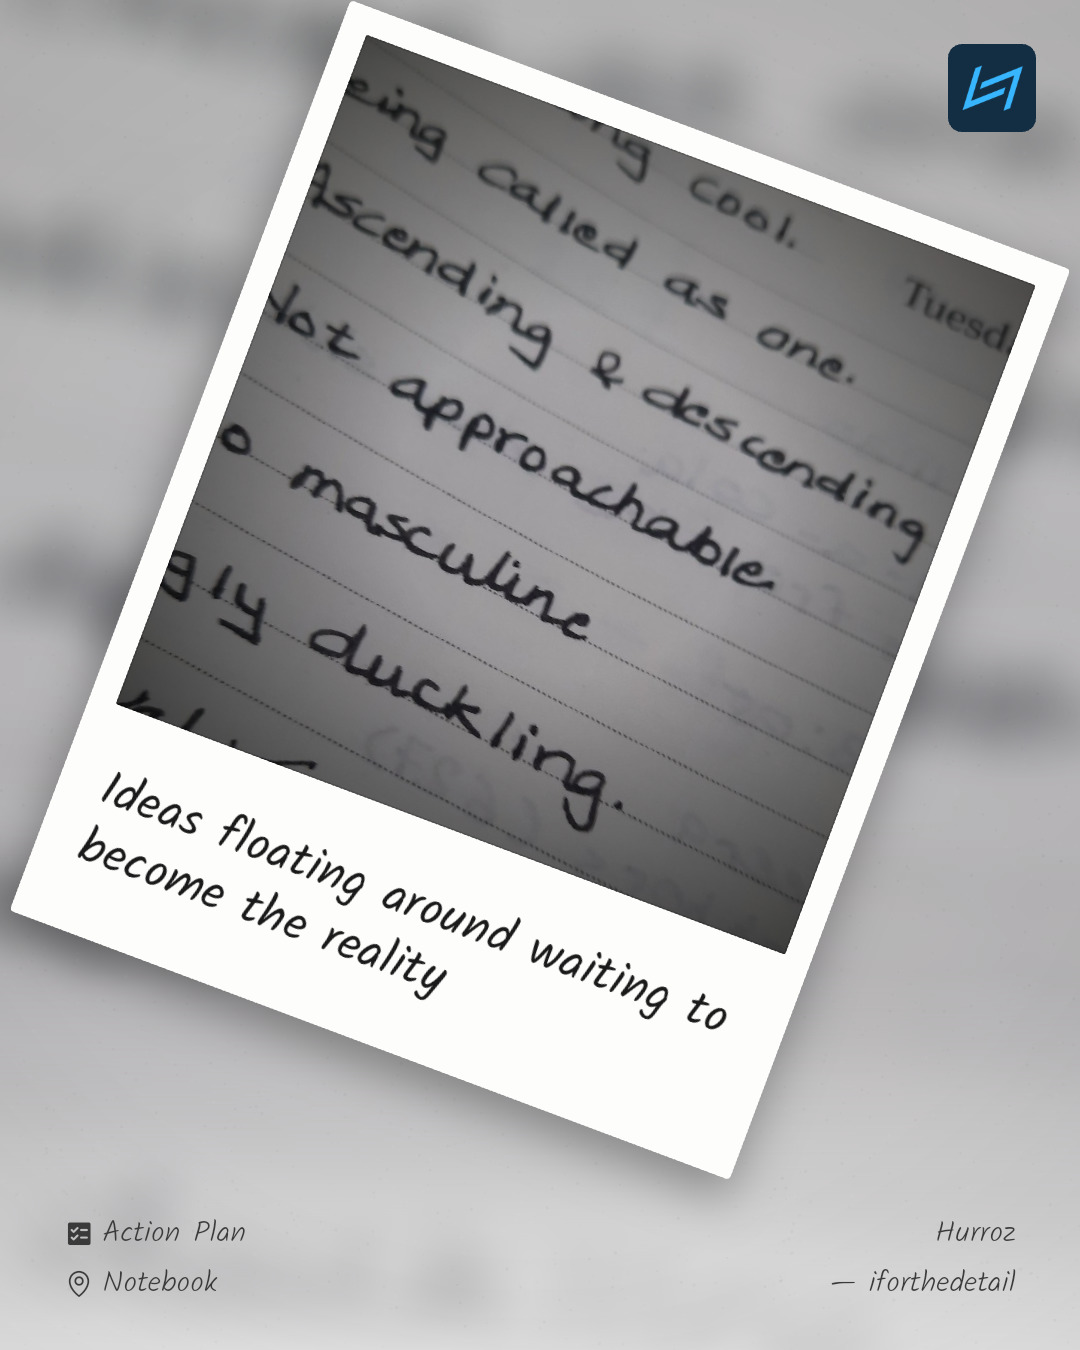 ng cool.
Tuesd
eing called as one.
Ascending & descending
Not approachable.
o masculine
gly duckling.
Ideas floating around waiting to
become the reality
Action Plan
Notebook
Hurroz
— iforthedetail